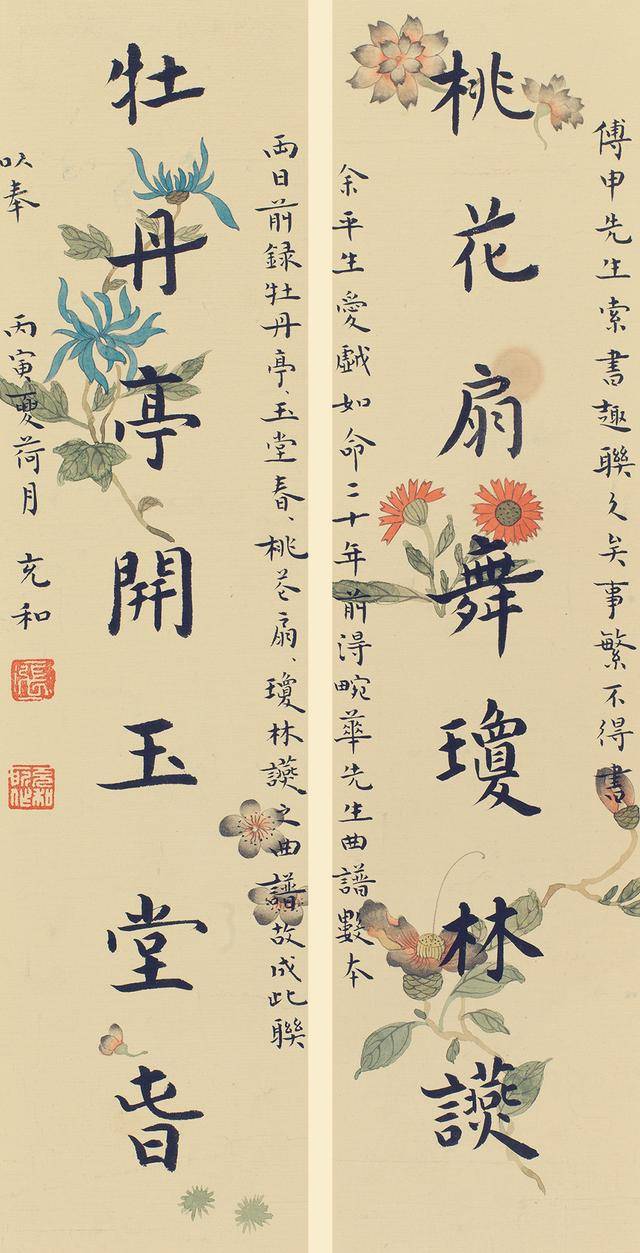 傅申先生索書趣聯久矣事繁不得書
桃花扇舞瓊林讌
余平生愛戲如命二十年前得畹華先生曲譜數本
兩日前録牡丹亭、玉堂春、桃花扇、瓊林讌之曲譜故成此聯
牡丹亭開玉堂旾
以奉 丙寅夏荷月 充和
張